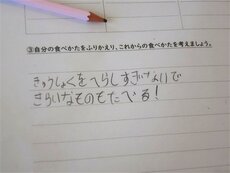 ③自分の食べかたをふりかえり、これからの食べかたを考えましょう。
きゅうしょくをへらしすぎないで
きらいなものもたべる!